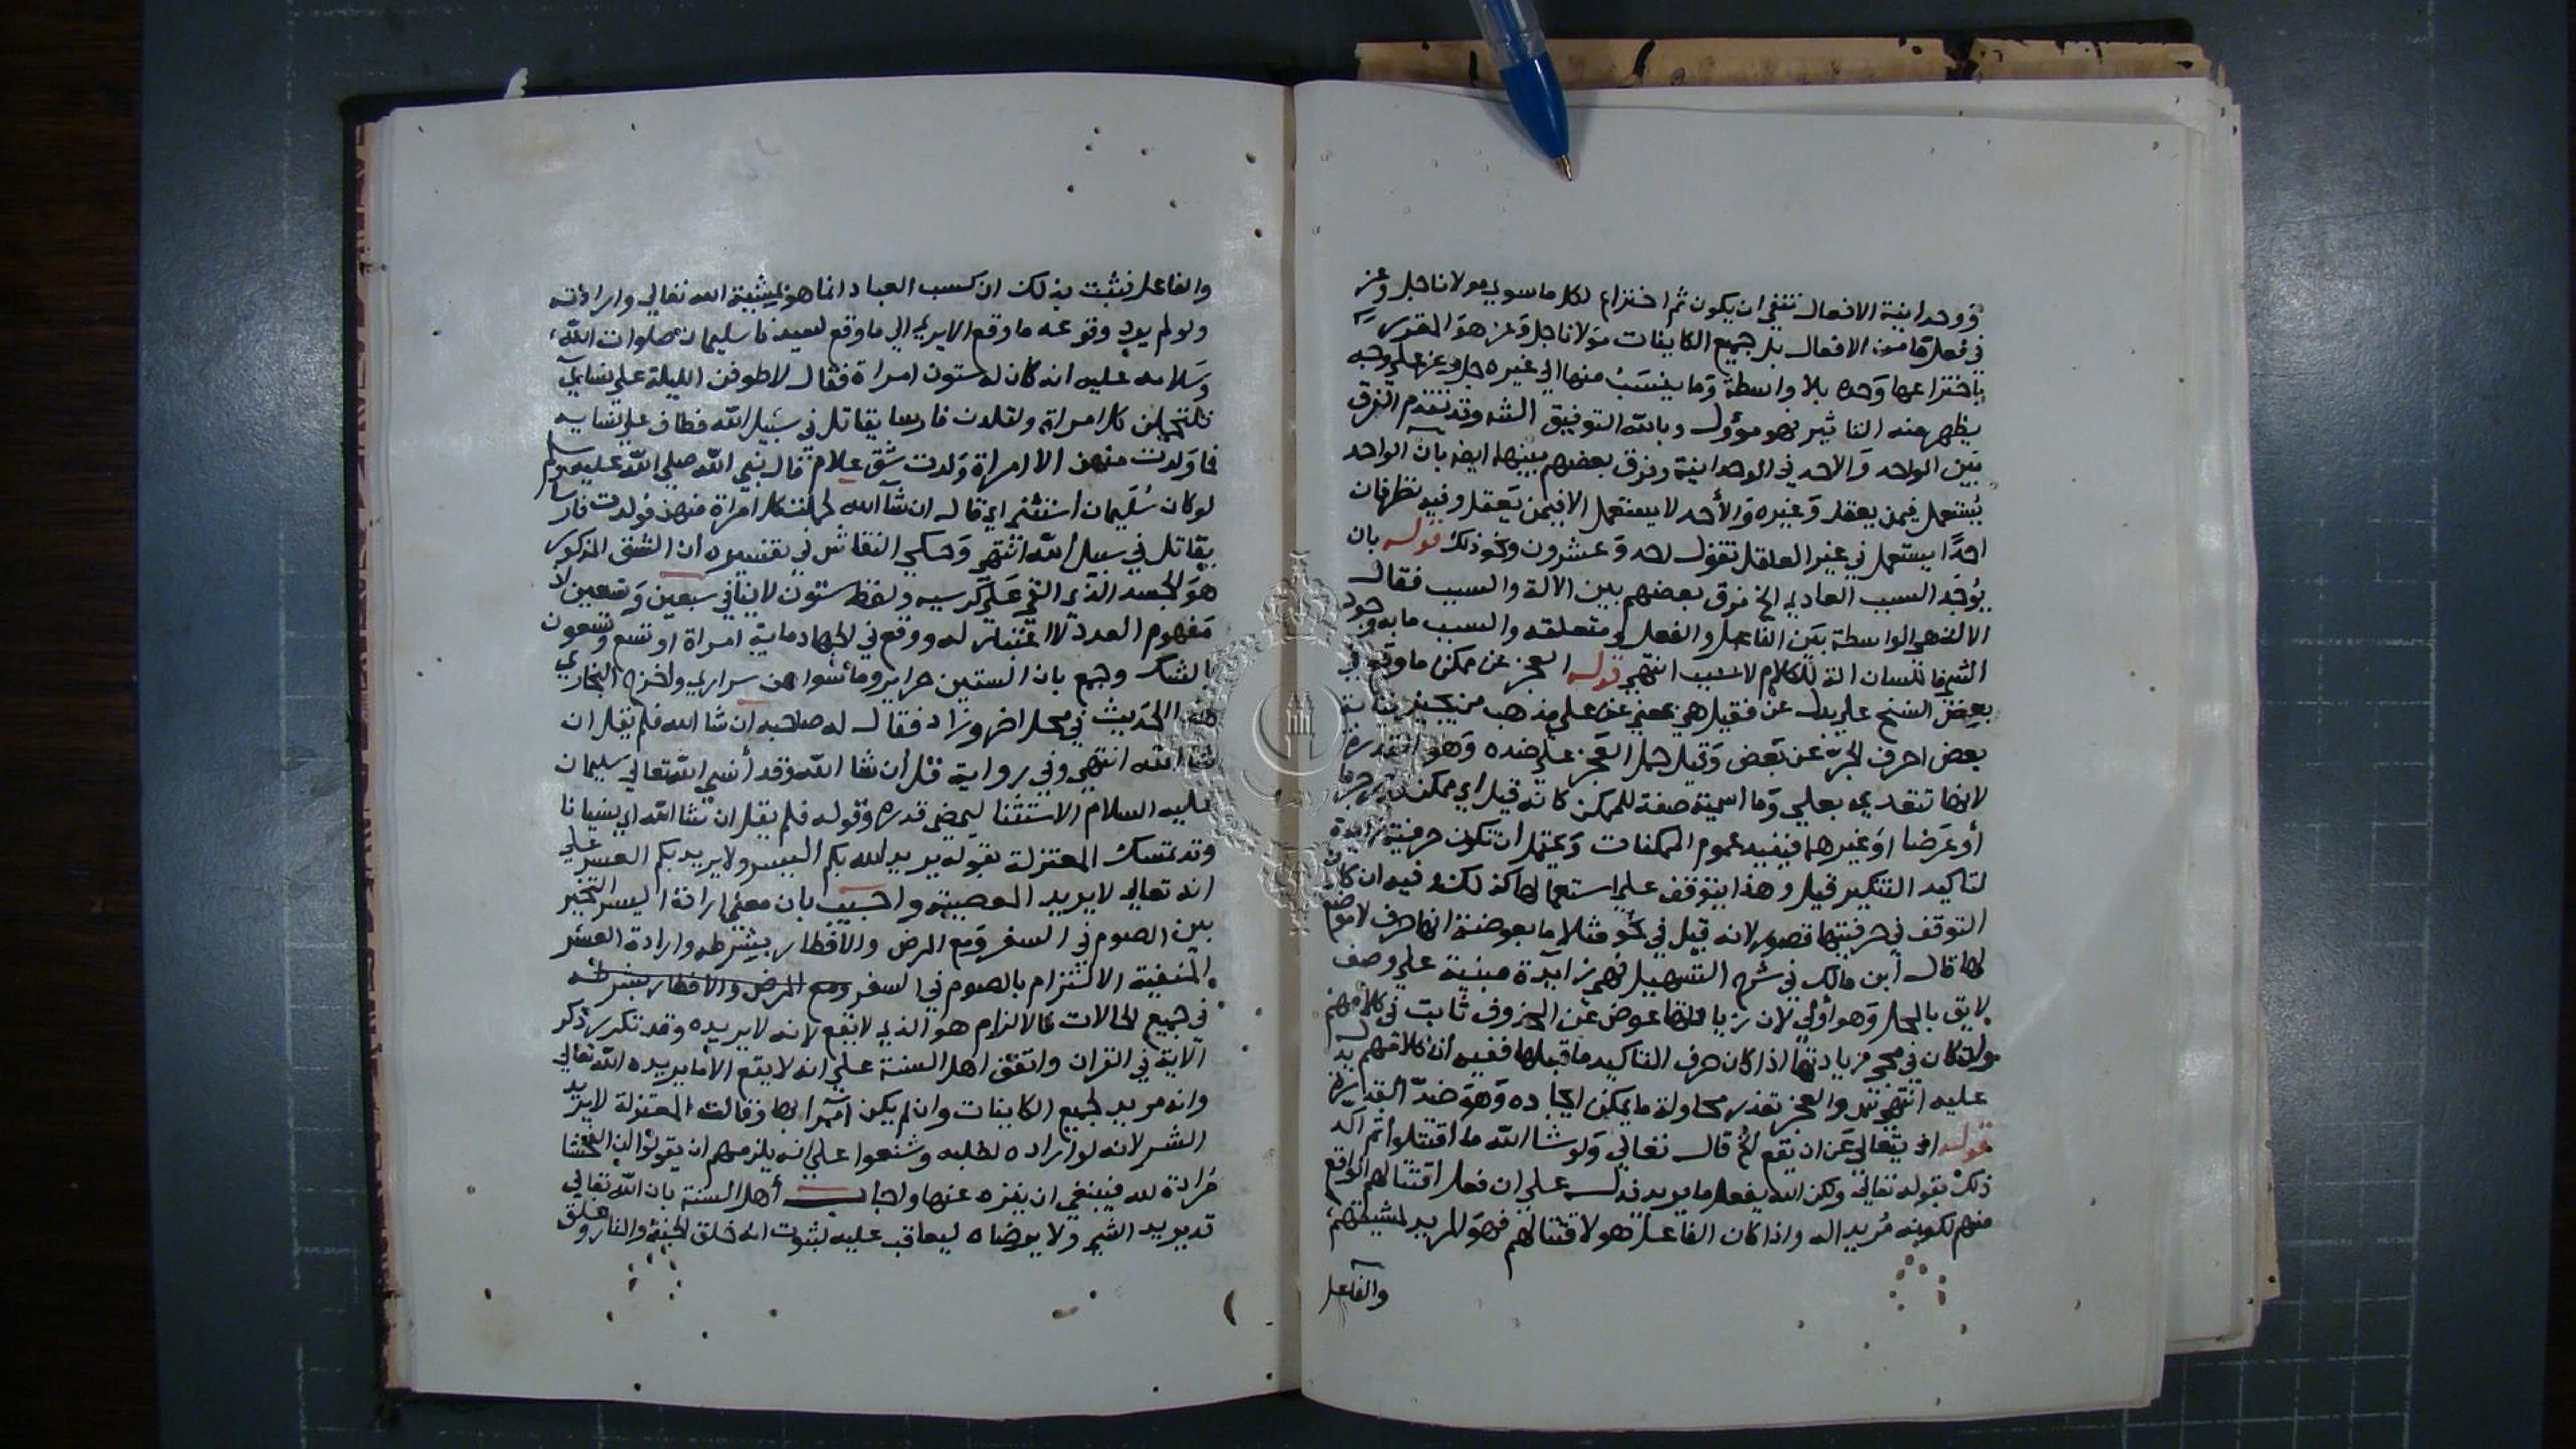 ووحدانية الافعال تنفي ان يكون ثم اختراع لكل ماسوي مولانا جل وعز
في فعل ما من الافعال بل جميع الكاينات مولانا جل وعز هو المقدر
باختراعها وحده بلا واسطة وما ينسب منها الي غيره جل وعز علي وجه
يظهر منه التاثير فهو مؤول وبالله التوفيق الشه وقد تقدم الفرق
بين الواحد والاحد في الوحدانية وفرق بعضهم بينهما ايضا بان الواحد
يستعمل فيمن يعقل وغيره والأحد لا يستعمل الا فيمن يعقل وفيه نظر فان
احدا يستعمل في غير العاقل تقول احد وعشرون ونحو ذلك قوله بان
يوجد السبب العادي الخ فرق بعضهم بين الالة والسبب فقال
الالة هي الواسطة بين الفاعل والفعل ومتعلقه والسبب ما به وجود
الشي فاللسان الة للكلام لا سبب انتهي قوله العجز عن ممكن ما وقع في
بعض النسخ علي بدل عن فقيل هي بمعني عن علي مذهب من يجيز نيابة
بعض احرف الجر عن بعض وقيل حمل العجز علي ضده وهو القدرة
لانها تتعدي بعلي وما اسمية صفة للممكن كانه قيل اي ممكن
أو عرضا او غيرهما فيفيد عموم الممكنات ويحتمل ان تكون حرفية زايدة
لتاكيد التنكير قيل وهذا يتوقف علي استعمالها كذلك وفيه ان كان
التوقف في حرفيتها قصور لانه قيل في نحو مثلا ما بعوضة انها حرف لا موضع
لها قال أبن مالك في شرح التسهيل فهي زايدة مبنية علي وصف
لايق بالمحل وهو أولي لان زيادتها عوض عن المحذوف ثابت في كلامهم
وان كان في محل زيادتها اذا كان حرف التاكيد ما قبلها ففيه ان كلامهم يدل
عليه انتهي والعجز تعذر محاولة ما يمكن ايجاده وهو ضد القدرة
قوله اذ يتعالي عن ان يقع الخ قال تعالي ولو شا الله ما اقتتلوا ثم اكد
ذلك بقوله تعالي ولكن الله يفعل ما يريد فدل علي ان فعل اقتتالهم الواقع
منهم لكونه مريدا له واذا كان الفاعل هو لاقتتالهم فهو المريد لمشيئتهم
والفاعل
والفاعل فثبت بذلك ان كسب العباد انما هو بمشيئة الله تعالي وارادته
ولو لم يرد وقوعه ما وقع الا يري الي ما وقع لسيدنا سليمان صلوات الله
وسلامه عليه انه كان له ستون امراة فقال لاطوفن الليلة علي نسايي
فلتحملن كل امراة ولتلدن فارسا يقاتل في سبيل الله فطاف علي نسايه
فما ولدت منهن الا امراة ولدت شق غلام قال نبي الله صلي الله عليه وسلم
لو كان سليمان استثني اي قال ان شآ الله لحملت كل امراة منهن فولدت فارسا
يقاتل في سبيل الله انتهي وحكي النقاش في تفسيره ان الشق المذكور
هو الجسد الذي القي علي كرسيه ولفظ ستون لا ينافي سبعين وتسعين لا
مفهوم العدد لا اعتبار له ووقع في الجهاد ماية امراة او تسع وتسعون
بالشك وجمع بان الستين حراير وما سواهن سراري واخرج البخاري
هذا الحديث في محل اخر وزاد فقال له صاحبه ان شا الله فلم يقل ان
شا الله انتهي وفي رواية قل ان شا الله وقد أنسي الله تعالي سليمان
عليه السلام الاستثنا ليمضي قدره وقوله فلم يقل ان شا الله اي نسيانا
وقد تمسك المعتزلة بقوله يريد الله بكم اليسر ولا يريد بكم العسر علي
انه تعالي لا يريد المعصية واجيب بان معني ارادة اليسر التخيير
بين الصوم في السفر ومع المرض والافطار بشرطه وارادة العسر
المنفية الالتزام بالصوم في السفر ومع المرض والافطار بشرطه
في جميع الحالات فالالزام هو الذي لا يقع لانه لا يريده وقد تكرر ذكر
الآية في القران واتفق اهل السنة علي انه لا يقع الا ما يريده الله تعالي
وانه مريد لجميع الكاينات وان لم يكن آمرا بها وقالت المعتزلة لا يريد
الشر لانه لو اراده لطلبه وشنعوا علي انه يلزمهم ان يقولوا ان الفحشا
مرادة لله فينبغي ان ينزه عنها واجاب أهل السنة بان الله تعالي
قد يريد الشي ولا يرضاه ليعاقب عليه لثبوت انه خلق الجنة والنار وخلق